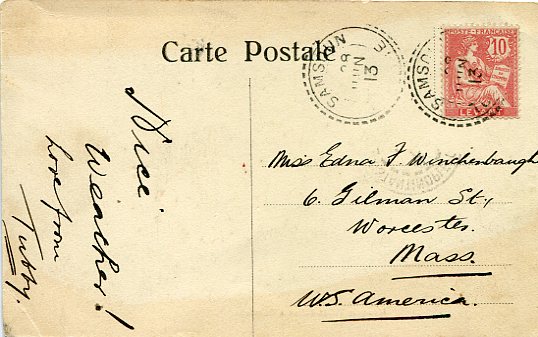 Carte Postale
SAMSOUN
28
JUIN
13
POSTE FRANÇAISE
10
LEVANT
SAMSOUN
28
JUIN
13
Nice
Weather!
Love from
Tubby.
Miss Edna F. Winchenbaugh
6. Gilman St.,
Worcester.
Mass.
U.S. America.